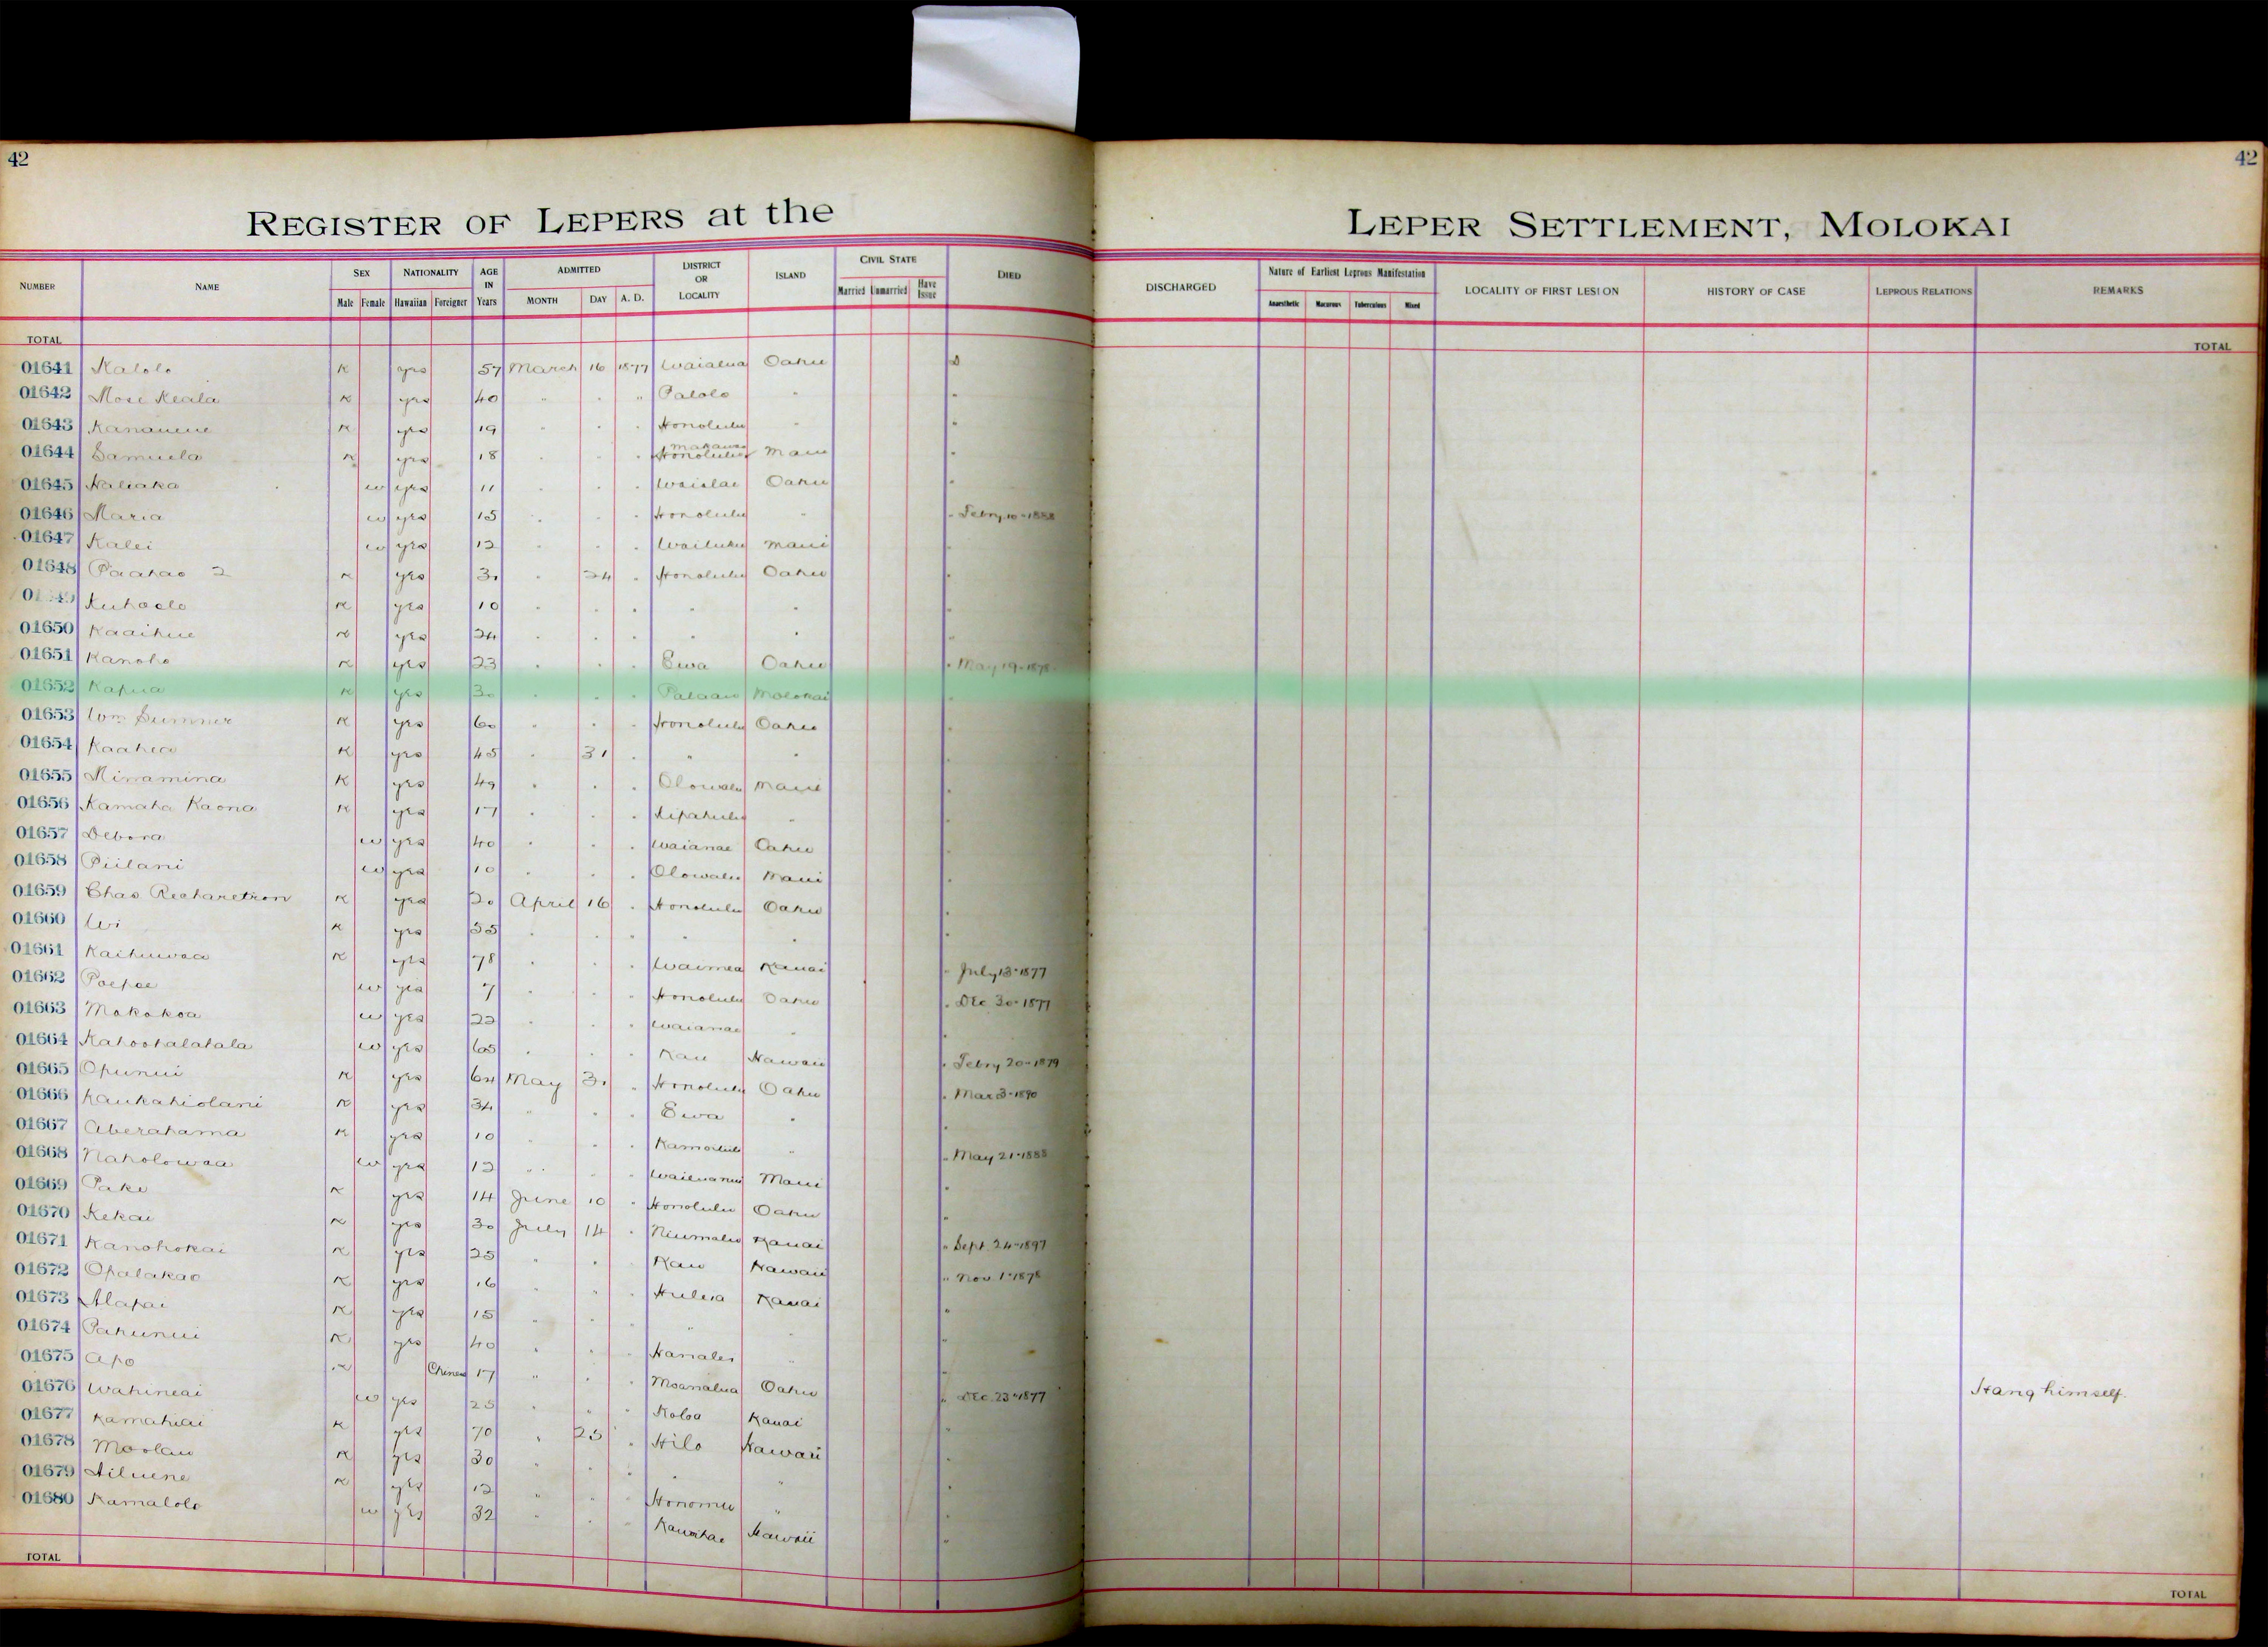 42
42
REGISTER OF LEPERS at the LEPER SETTLEMENT, MOLOKAI
NUMBER NAME SEX NATIONALITY AGE IN Years ADMITTED DISTRICT OR LOCALITY ISLAND CIVIL STATE DIED DISCHARGED Nature of Earliest Leprous Manifestation LOCALITY OF FIRST LESION HISTORY OF CASE LEPROUS RELATIONS REMARKS
Male Female Hawaiian Foreigner MONTH DAY A. D. Married Unmarried Have Issue Anaesthetic Macurous Tuberculous Mixed
TOTAL TOTAL
01641 Kalolo K yes 57 March 16 1877 Waialua Oahu D
01642 Mose Keala K yes 40 " " " Palolo " "
01643 K yes 19 " " " Honolulu " "
01644 Samuela K yes 18 " " " Honolulu Makawao Maui "
01645 w yes 11 " " " Waialae Oahu "
01646 Maria w yes 15 " " " Honolulu " " Febry 10-1888
01647 Kalei w yes 12 " " " Wailuku Maui "
01648 Paahao 2 K yes 24 " Honolulu Oahu "
K yes 10 " " " " " "
01650 Kaaihue K yes 24 " " " " " "
01651 Kanoho K yes 23 " " " Ewa Oahu " May 19-1878
01652 Kapua K yes 30 " " " Palaau Molokai "
01653 Wm Sumner K yes 60 " " " Honolulu Oahu "
01654 Kaahea K yes 45 " 31 " " " "
01655 Minamina K yes 49 " " " Olowalu Maui "
01656 Kamaha Kaona K yes 17 " " " Kipahulu " "
01657 Debora w yes 40 " " " Waianae Oahu "
01658 Piilani w yes 10 " " " Olowalu Maui "
01659 Chas K yes 20 April 16 " Honolulu Oahu "
01660 Wi K yes " " " " " "
01661 Kaihuwaa K yes 78 " " " Waimea Kauai " July 13-1877
01662 Poepoe w yes 7 " " " Honolulu Oahu " Dec 30-1877
01663 Makakoa w yes 22 " " " Waianae " "
01664 Kahoohalahala w yes 65 " " " Kau Hawaii " Febry 20-1879
01665 Opunui K yes 64 May " Honolulu Oahu " Mar 3-1890
01666 Kaukahiolani K yes 34 " " " Ewa " "
01667 Aberahama K yes 10 " " " Kamoiliili " " May 21-1888
01668 Naholowaa w yes 12 " " " Wailuanui Maui "
01669 Pake K yes 14 June 10 " Honolulu Oahu "
01670 Kekai K yes 30 July 14 " Niumalu Kauai " Sept. 24-1897
01671 Kanohokai K yes 25 " " " Kau Hawaii " Nov. 1-1878
01672 Opalakao K yes 16 " " " Huleia Kauai "
01673 Alapai K yes 15 " " " " " "
01674 Pahunui K yes 40 " " " Hanalei " "
01675 Apo K Chinese 17 " " " Moanalua Oahu " Dec. 23-1877 Hang himself.
01676 Wahineai w yes 25 " " " Koloa Kauai "
01677 Kamahiai K yes 70 " 25 " Hilo Hawaii "
01678 Moolau K yes 30 " " " " " "
01679 K yes 12 " " " Honomu " "
01680 Kamalolo w yes 32 " " " Kawaihae Hawaii "
TOTAL TOTAL